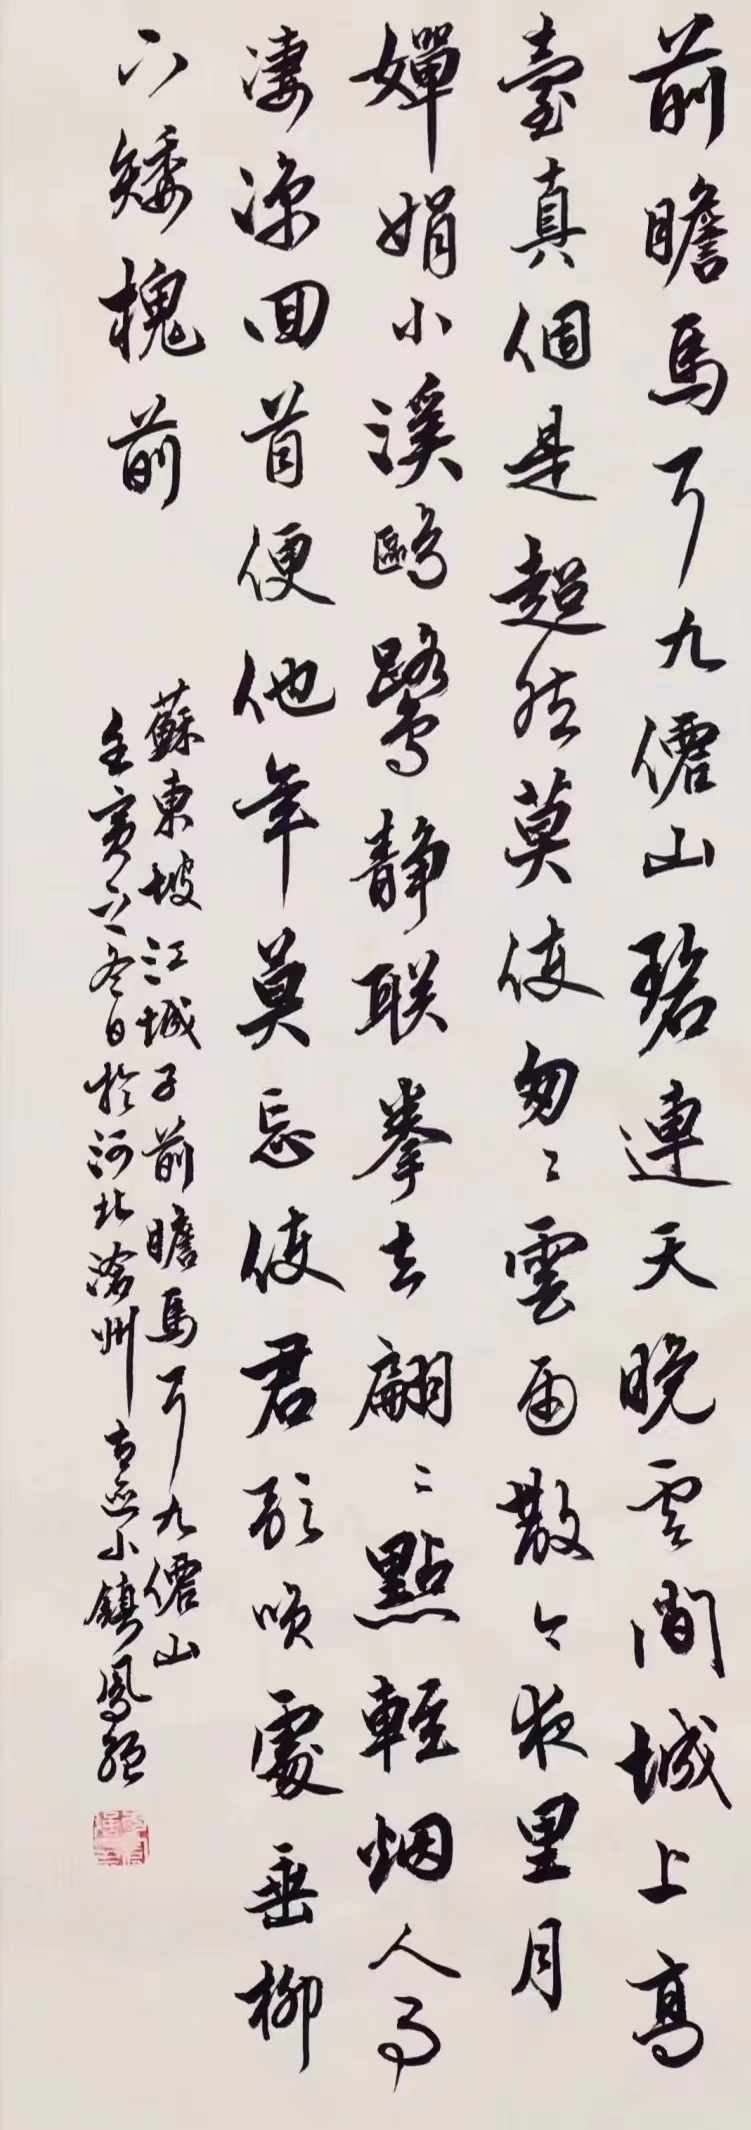 前瞻馬耳九僊山碧連天晚雲間城上高
臺真個是超然莫使匆匆雲雨散今夜里月
嬋娟小溪鷗鷺静联拳去翩翩點輕烟人事
凄凉回首便他年莫忘使君歌唤處垂柳
下矮槐前
蘇東坡江城子前瞻馬耳九僊山
壬寅立冬日於河北滄州古邑小鎮鳳